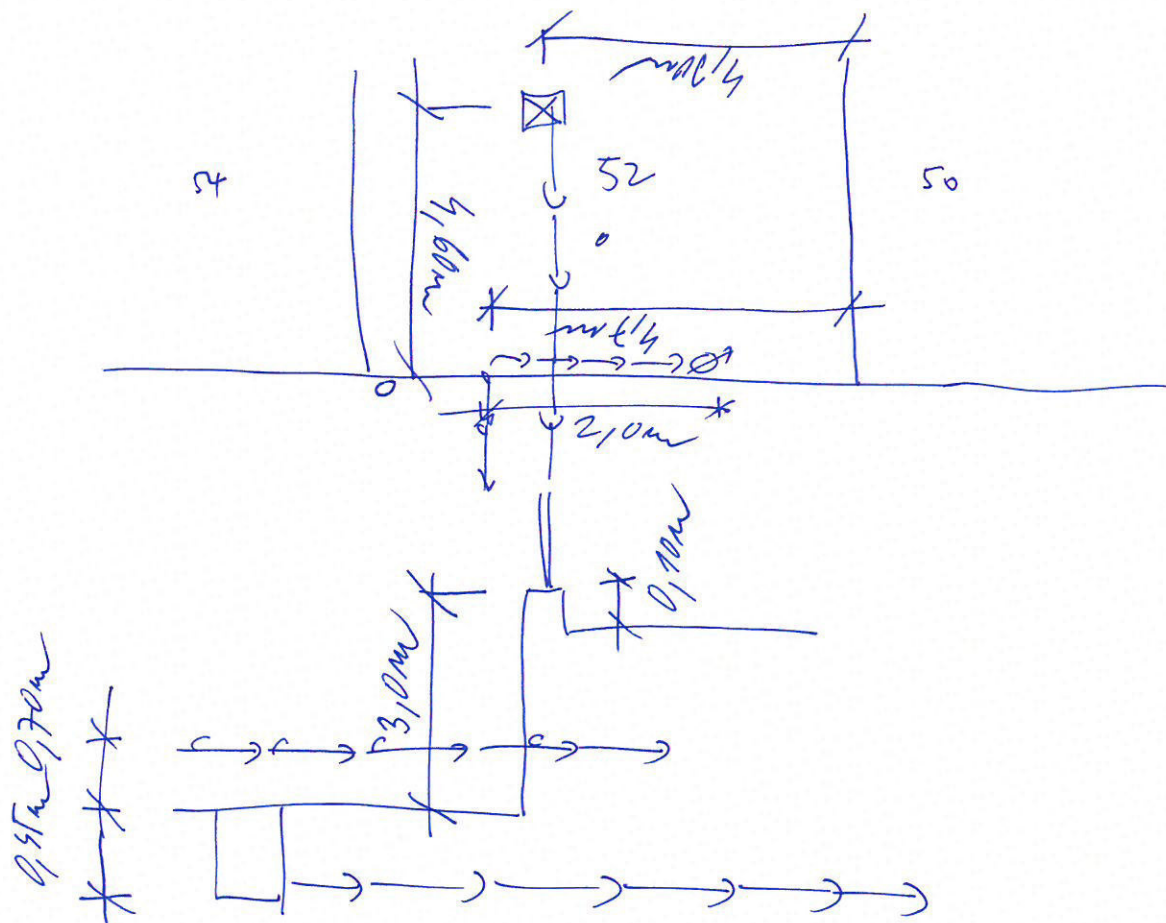 4,20m
54
52
50
4,60m
4,7m
2,0m
0,10m
3,0m
0,70m
0,45m